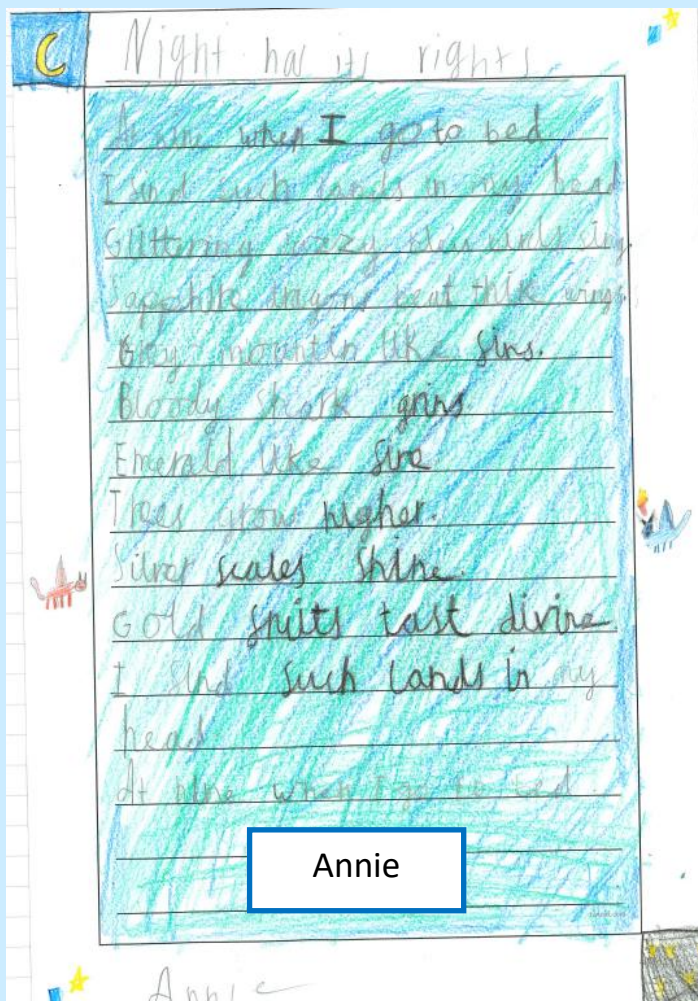 Night has its rights
At nine when I go to bed
I find such lands in my head
Glittering birds sing.
dragons beat wings.
mountin like fins.
Bloody shark grins
Emerald like fire
Trees grow higher.
Silver scales shine.
Gold fruits tast divine
I find such lands in my
head
At nine when I go to bed.
Annie
Annie